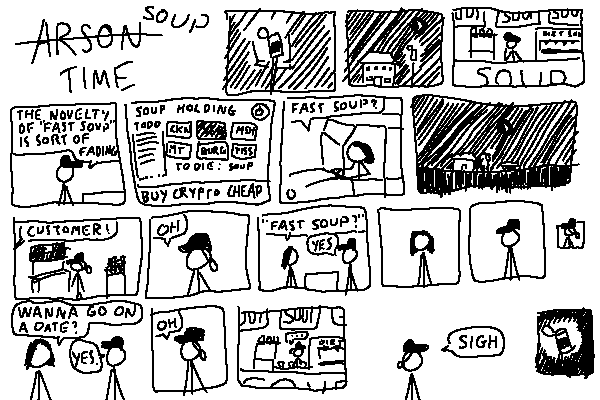 ARSON SOUP
TIME
SOUP
THE NOVELTY
OF "FAST SOUP"
IS SORT OF
FADING
SOUP HOLDING
TODO
CKN
MSH
MT
BURG
MISS
TO DIE: SOUP
BUY CRYPTO CHEAP
FAST SOUP?
CUSTOMER!
OH
"FAST SOUP?"
YES
WANNA GO ON
A DATE?
YES
OH
SIGH